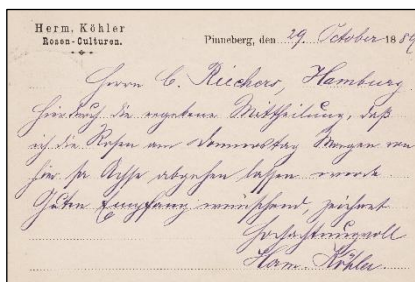 Herm. Köhler
Rosen-Culturen.
Pinneberg, den 29. October 1889
Herrn C. Riechers, Hamburg.
Hierdurch die ergebene Mittheilung, daß
ich die Rosen am Donnerstag Morgen von
hier pr Achse abgehen lassen werde.
Guten Empfang wünschend, zeichnet
Hochachtungsvoll
Herm. Köhler.